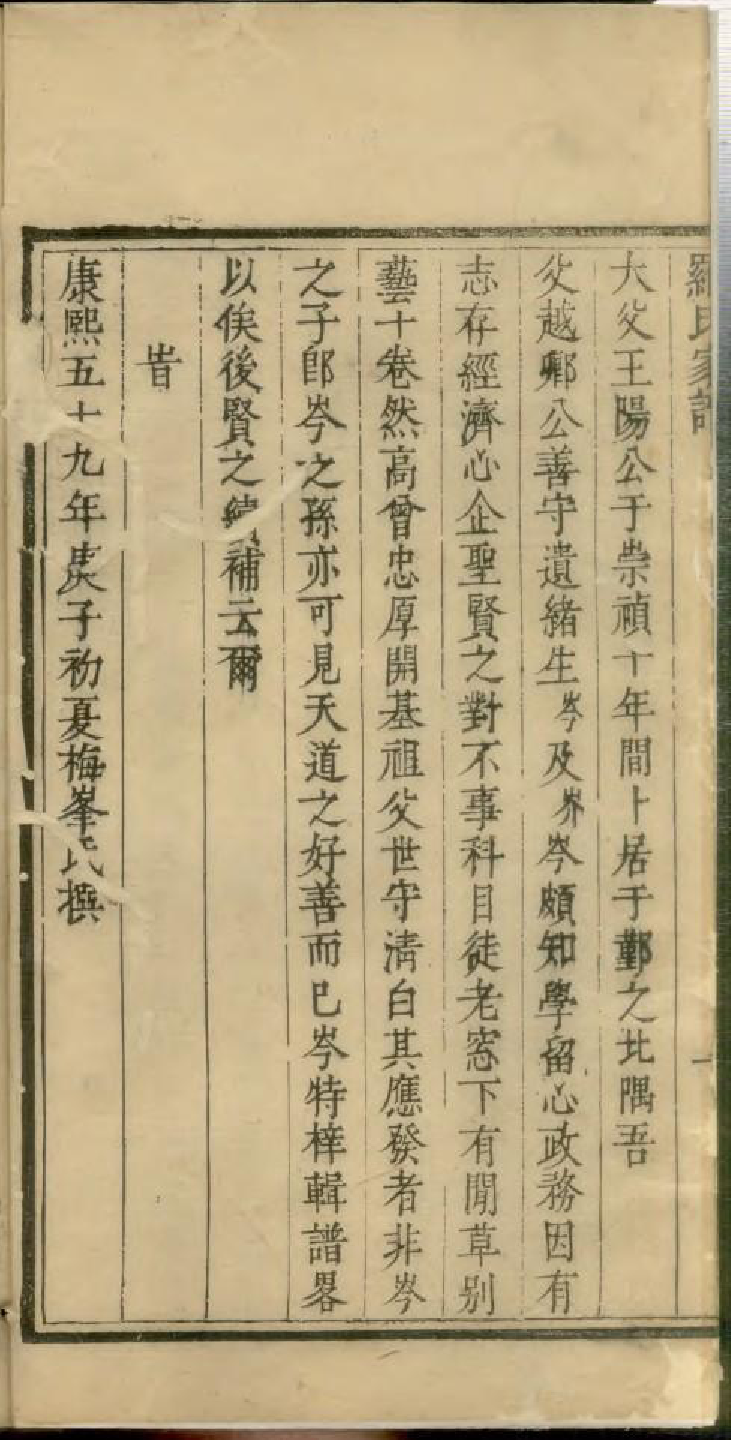 羅氏家譜
一
大父王陽公于崇禎十年間卜居于鄞之北隅吾
父越卿公善守遺緒生岑及岕岑頗知學留心政務因有
志存經濟心企聖賢之對不事科目徒老窓下有閒草别
藝十卷然高曾忠厚開基祖父世守清白其應發者非岑
之子郎岑之孫亦可見天道之好善而已岑特梓輯譜畧
以俟後賢之續補云爾
旹
康熙五十九年庚子初夏梅峯氏撰